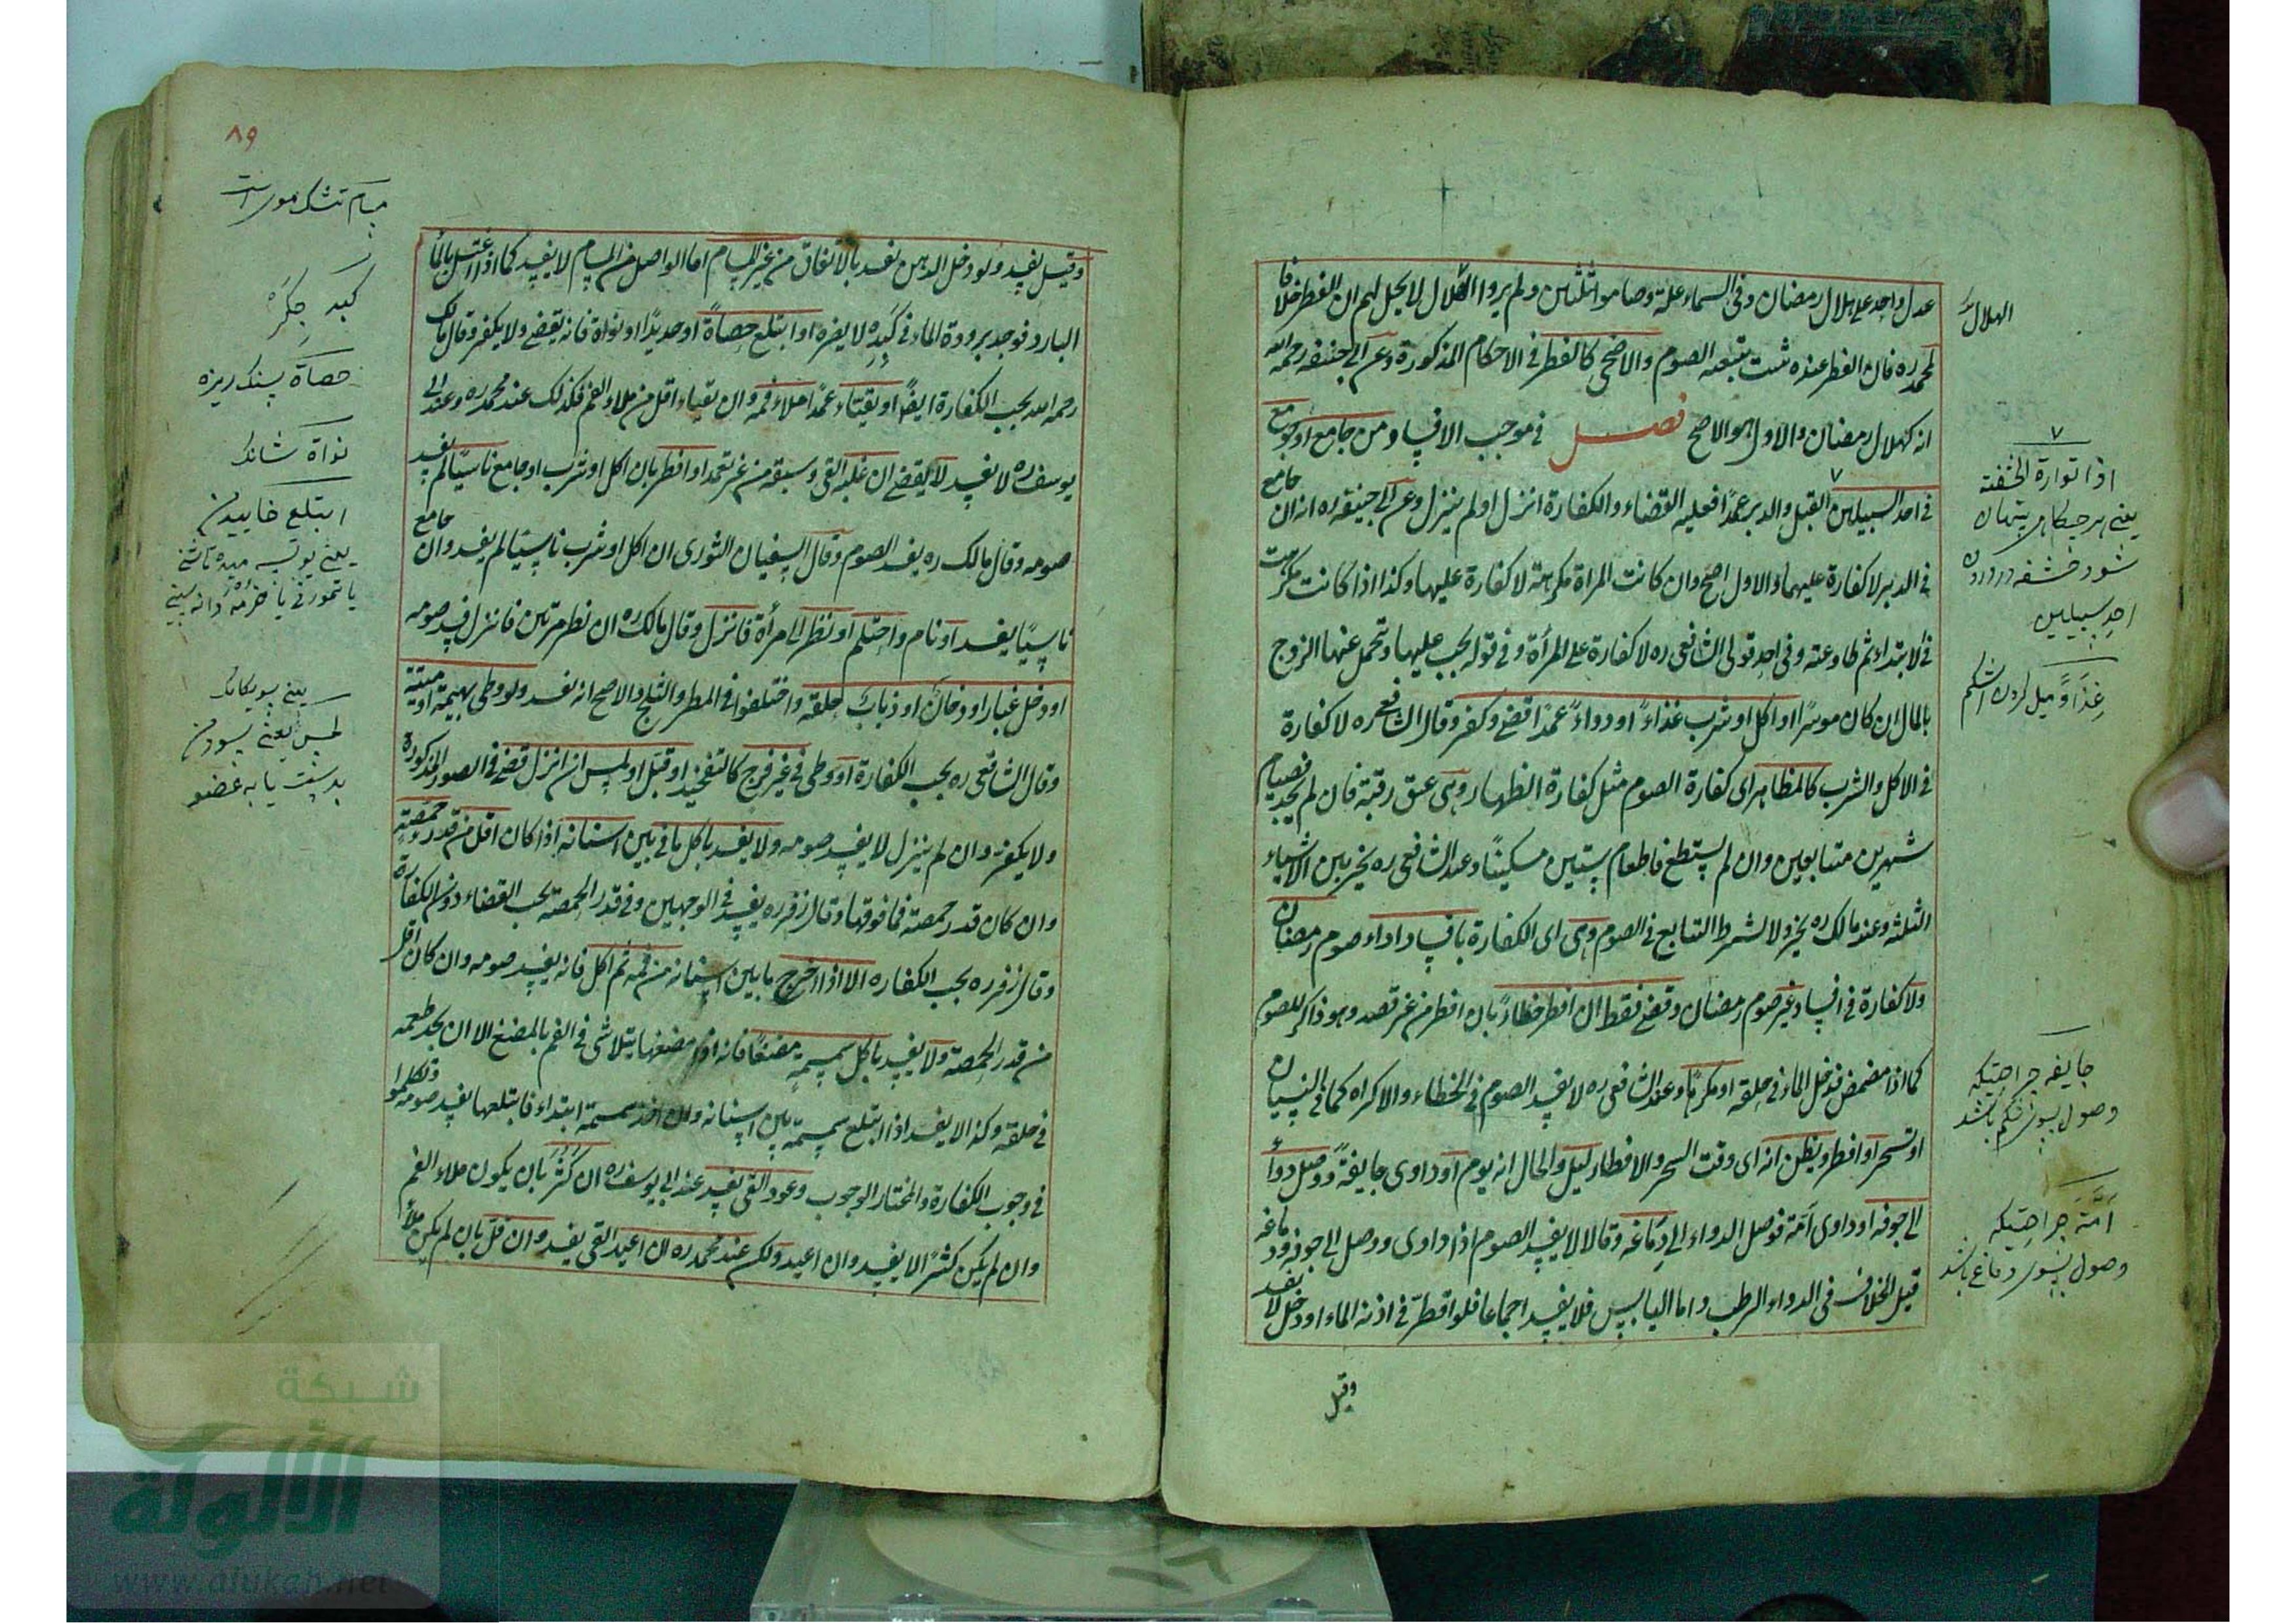 عدل واحد على هلال رمضان وفى السماء علة وصاموا ثلثين ولم يروا الهلال لا يحل لهم ان الفطر خلافا
لمحمد ره فان الفطر عنده يثبت بتبعية الصوم والاضحى كالفطر فى الاحكام المذكورة وعن ابى حنيفة رحمه الله
انه كهلال رمضان والاول هو الاصح فصل فى موجب الافساد ومن جامع او جومع
فى احد السبيلين القبل والدبر عمدًا فعليه القضاء والكفارة انزل او لم ينزل وعن ابى حنيفة ره انه ان جامع
فى الدبر لا كفارة عليهما والاول اصح وان كانت المراة مكرهة لا كفارة عليها وكذا اذا كانت مكرهت
فى الابتداء ثم طاوعته وفى احد قولى الشافعى ره لا كفارة على المرأة وفى قوله يجب عليها وتحمل عنها الزوج
بالمال ان كان موسرًا او اكل او شرب غذاءً او دواءً عمدًا قضى وكفر وقال الشافعى ره لا كفارة
فى الاكل والشرب كالمظاهر اى كفارة الصوم مثل كفارة الظهار وهى عتق رقبة فان لم يجد فصيام
شهرين متتابعين وان لم يستطع فاطعام ستين مسكينًا وعند الشافعى ره يخير بين الاشياء
الثلثة وعند مالك ره يخير ولا لشرط التتابع فى الصوم وهى اى الكفارة بافساد اداء صوم رمضان
ولا كفارة فى افساد غير صوم رمضان وقضى فقط ان افطر خطاءً بان افطر من غير قصد وهو ذاكر للصوم
كما اذا مضمض فدخل الماء فى حلقه او مكرهًا وعند الشافعى ره لا يفسد الصوم فى الخطاء والاكراه كما فى النسيان
او تسحر او افطر ويظن انه اى وقت السحر والافطار ليل والحال انه يوم او داوى جايفةً ووصل دواءً
الى جوفه او داوى آمّة فوصل الدواء الى دماغه وقالا لا يفسد الصوم اذا داوى ووصل الى جوفه ودماغه
قيل الخلاف فى الدواء الرطب واما اليابس فلا يفسد اجماعا فلو اقطر فى اذنه الماء او دخل لا يفسد
وقيل
الهلال
٧
اذا توارة الحشفة
يعنى هر جيكاه پنهان
شود حشفه در درون
احد سبيلين
جايفه جراحتيكه
وصول بسوى شكم باشد
آمّة جراحتيكه
وصول بسوى دماغ باشد
٨٩
وقيل يفسد ولو دخل الدهن يفسد بالاتفاق من غير المسام اما الواصل من المسام لا يفسد كما اذا اغتسل بالماء
البارد فوجد برودة الماء فى كبده لا يضره او ابتلع حصاةً او حديدًا او نواة فانه يقضى ولا يكفر وقال مالك
رحمه الله يجب الكفارة ايضًا او يتقيّاء عمدًا ملاء فمه وان تقياء اقل من ملاء الفم فكذلك عند محمد ره وعند ابى
يوسف ره لا يفسد لا يقضى ان غلبه القى وسبقه من غير تعمد او افطر بان اكل او شرب او جامع ناسيًا لم يفسد
صومه وقال مالك ره يفسد الصوم وقال السفيان الثورى ان اكل او شرب ناسيًا لم يفسد وان جامع
ناسيًا يفسد او نام واحتلم او نظر الى امرأة فانزل وقال مالك ره ان نظر مرتين فانزل فسد صومه
او دخل غبار او دخان او ذباب حلقه واختلفوا فى المطر والثلج والاصح انه يفسد ولو وطى بهيمة او ميتة
وقال الشافعى ره يجب الكفارة او وطى فى غير فرج كالتفخيذ او قبّل او لمس ان انزل قضى فى الصور المذكورة
ولا يكفر وان لم ينزل لا يفسد صومه ولا يفسد باكل ما فى بين اسنانه اذا كان اقل من قدر حمصةٍ
وان كان قدر حمصة فما فوقها وقال زفر ره يفسد فى الوجهين وفى قدر الحمصة يجب القضاء دون الكفارة
وقال زفر ره يجب الكفاره الا اذا اخرج ما بين اسنانه من فمه ثم اكل فانه يفسد صومه وان كان اقل
من قدر الحمصة ولا يفسد باكل سمسمةٍ مضغًا فانه اذا مضغها يتلاشى فى الفم بالمضغ الا ان يجد طعمه
فى حلقه وكذا لا يفسد اذا ابتلع سمسمة بين اسنانه ولو اخذ سمسمة ابتداء فابتلعها يفسد صومه وتكلموا
فى وجوب الكفارة والمختار الوجوب وعود القى يفسد عند ابى يوسف ره ان كثر بان يكون ملاء الفم
وان لم يكن كثيرًا لا يفسد وان اعيد ولكن عند محمد ره ان اعيد القى يفسد وان قلّ بان لم يكن ملاءً
كبد جگر
حصاة سنك ريزه
نواة
ابتلع خاييدن
لمس يعنى بسودن
بدست يا به عضو
شبكة
الألوكة
www.alukah.net